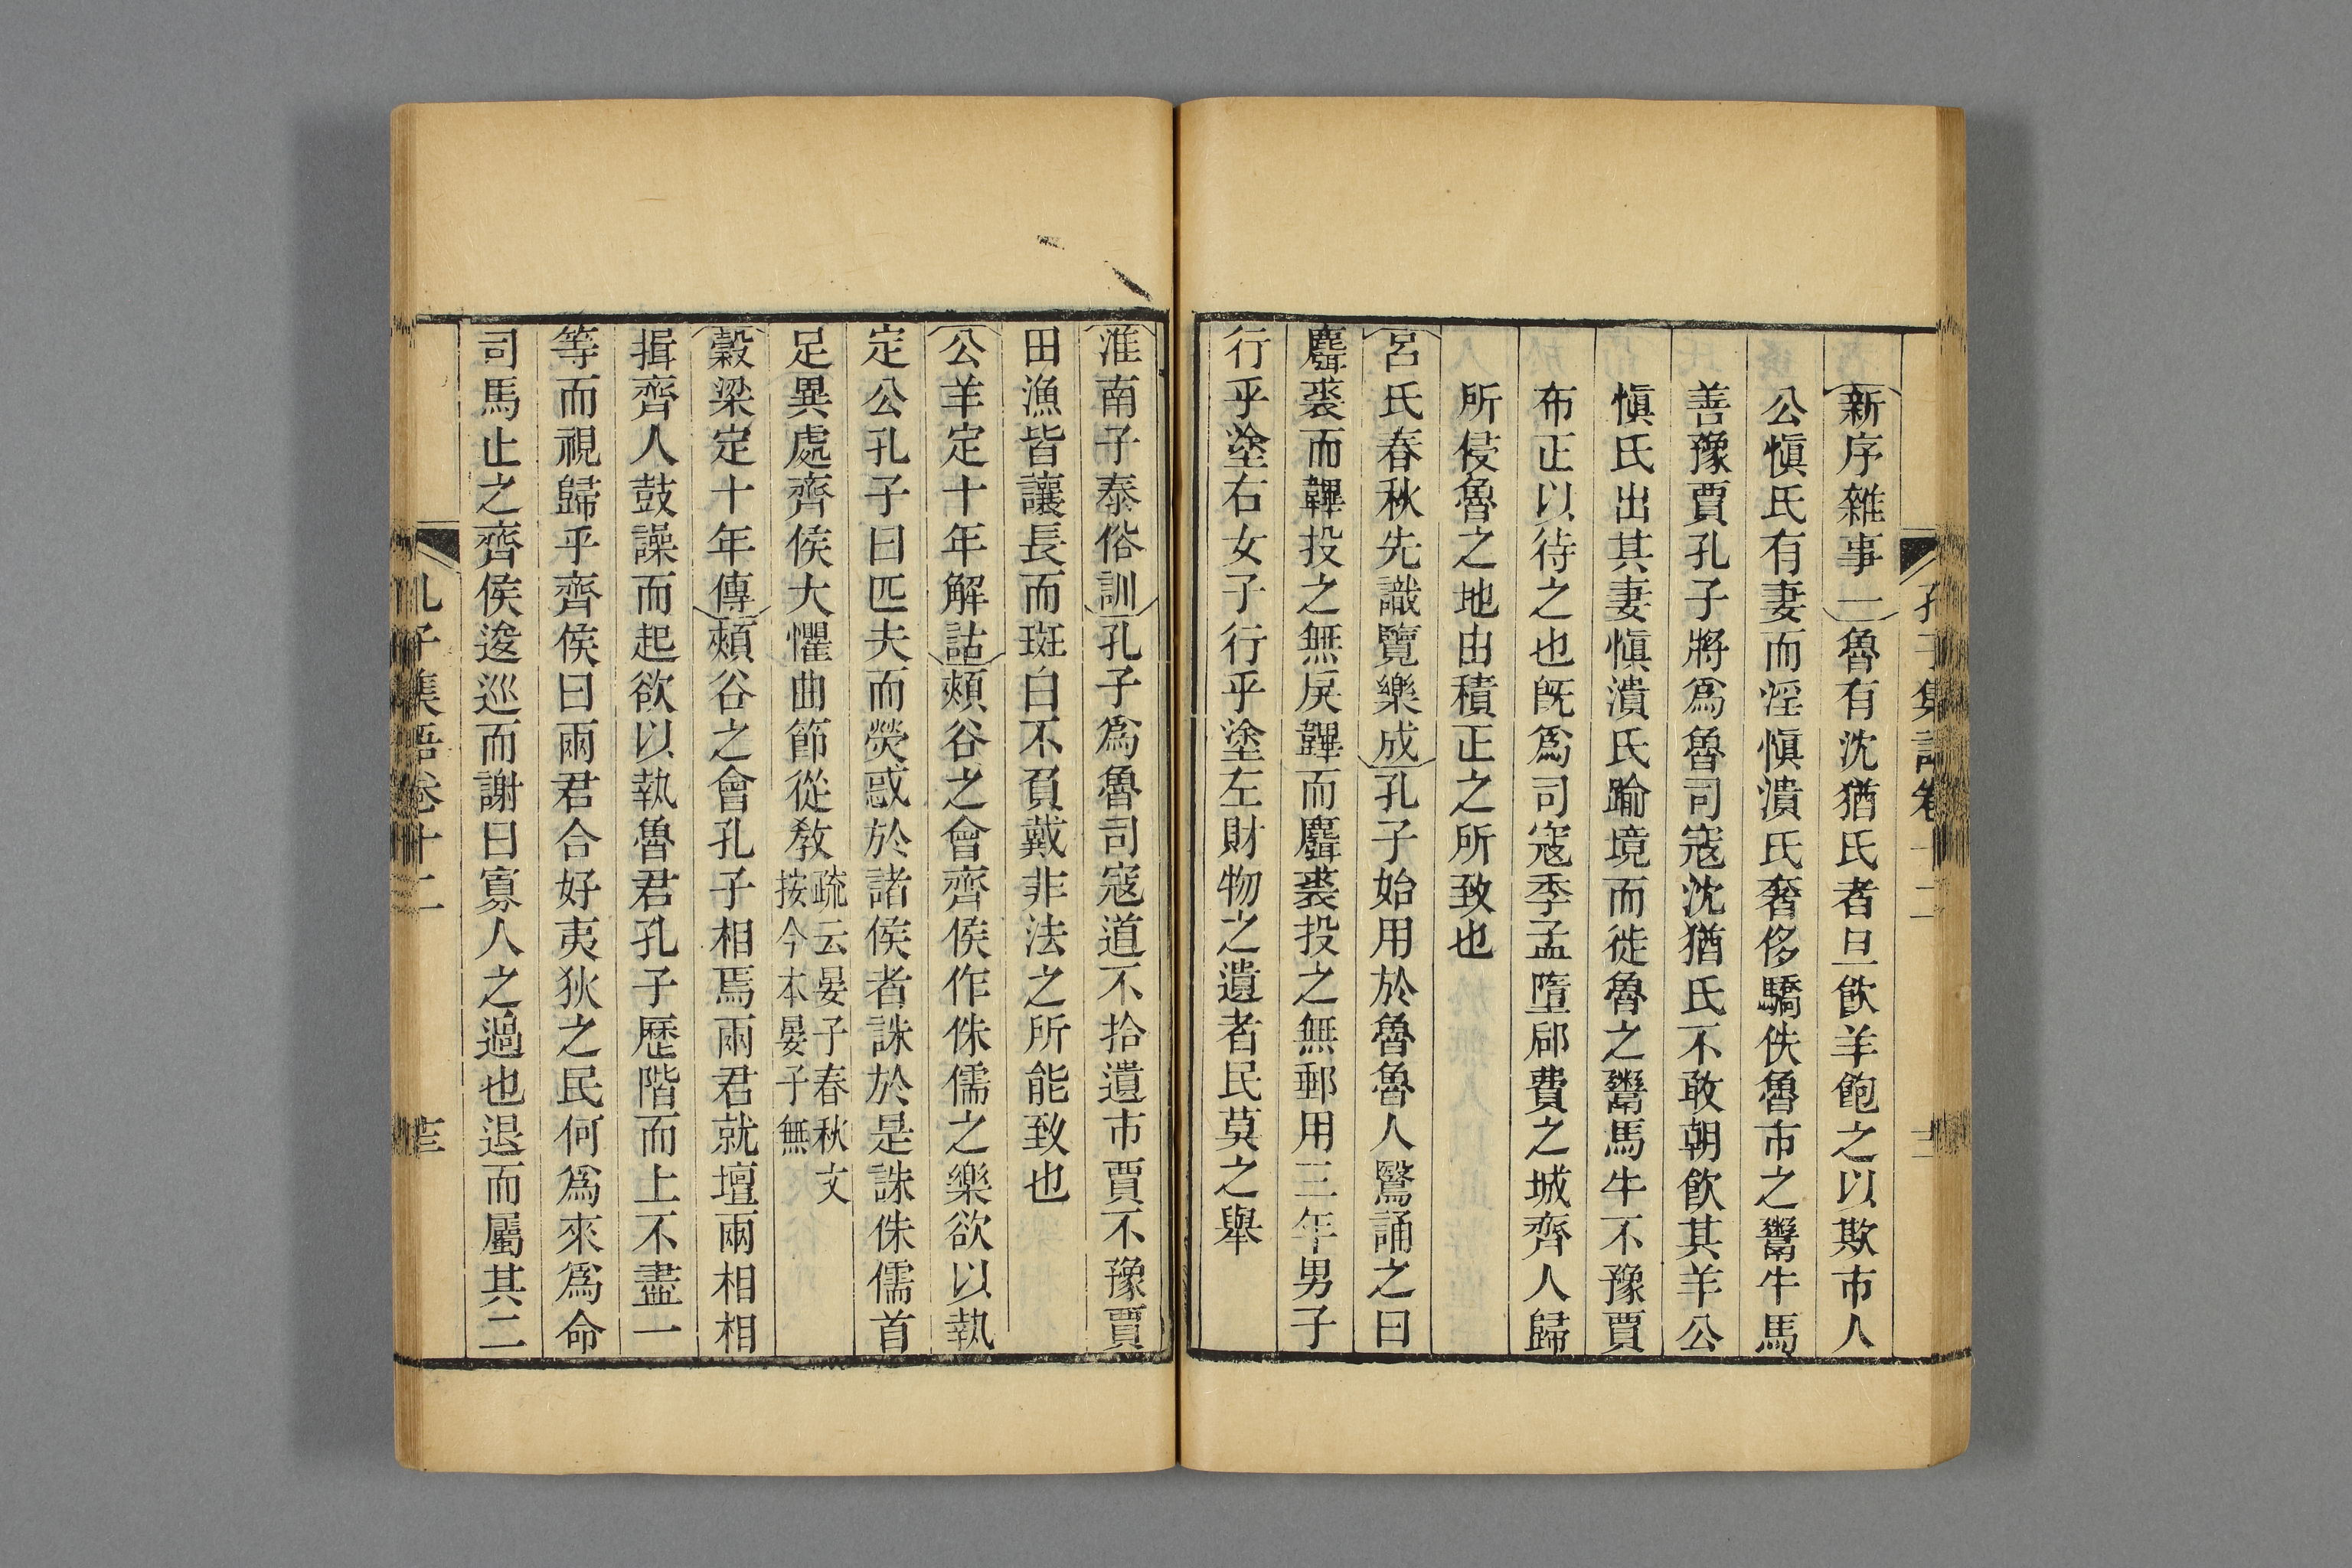 新序雜事一魯有沈猶氏者旦飮羊飽之以欺市人
公愼氏有妻而淫愼潰氏奢侈驕佚魯市之鬻牛馬
善豫賈孔子將爲魯司寇沈猶氏不敢朝飮其羊公
愼氏出其妻愼潰氏踰境而徙魯之鬻馬牛不豫賈
布正以待之也旣爲司寇季孟墮郈費之城齊人歸
所侵魯之地由積正之所致也
呂氏春秋先識覽樂成孔子始用於魯魯人鷖誦之曰
麛裘而韠投之無戾韠而麛裘投之無郵用三年男子
行乎塗右女子行乎塗左財物之遺者民莫之舉
淮南子泰俗訓孔子爲魯司寇道不拾遺市賈不豫賈
田漁皆讓長而斑白不負戴非法之所能致也
公羊定十年解詁頰谷之會齊侯作侏儒之樂欲以執
定公孔子曰匹夫而熒惑於諸侯者誅於是誅侏儒首
足異處齊侯大懼曲節從教疏云晏子春秋文
按今本晏子無
穀梁定十年傳頰谷之會孔子相焉兩君就壇兩相相
揖齊人鼓譟而起欲以執魯君孔子歷階而上不盡一
等而視歸乎齊侯曰兩君合好夷狄之民何爲來爲命
司馬止之齊侯逡巡而謝曰寡人之過也退而屬其二
孔子集語卷十二